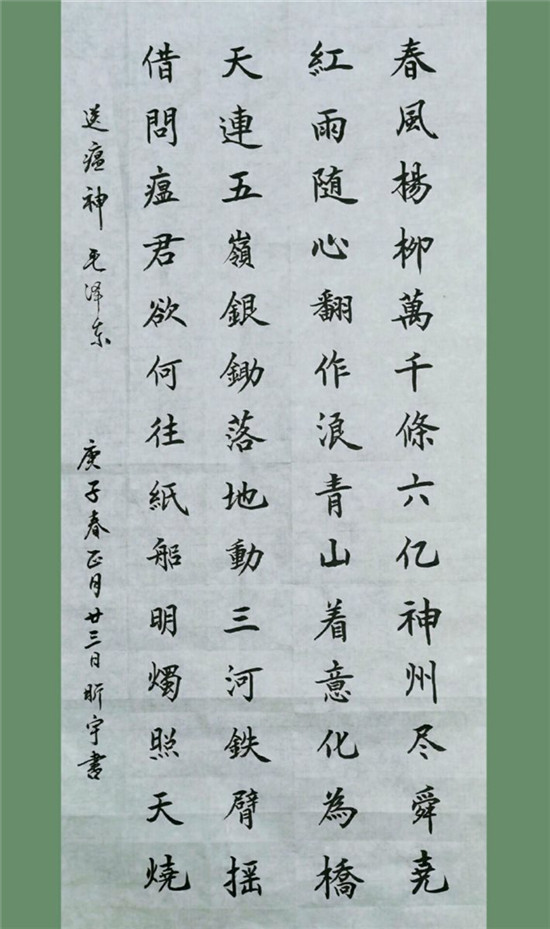 春風楊柳萬千條六亿神州尽舜尭
紅雨随心翻作浪青山着意化為橋
天連五嶺銀鋤落地動三河鉄臂摇
借問瘟君欲何往紙船明燭照天燒
送瘟神 毛泽东 庚子春正月廿三日昕宇書